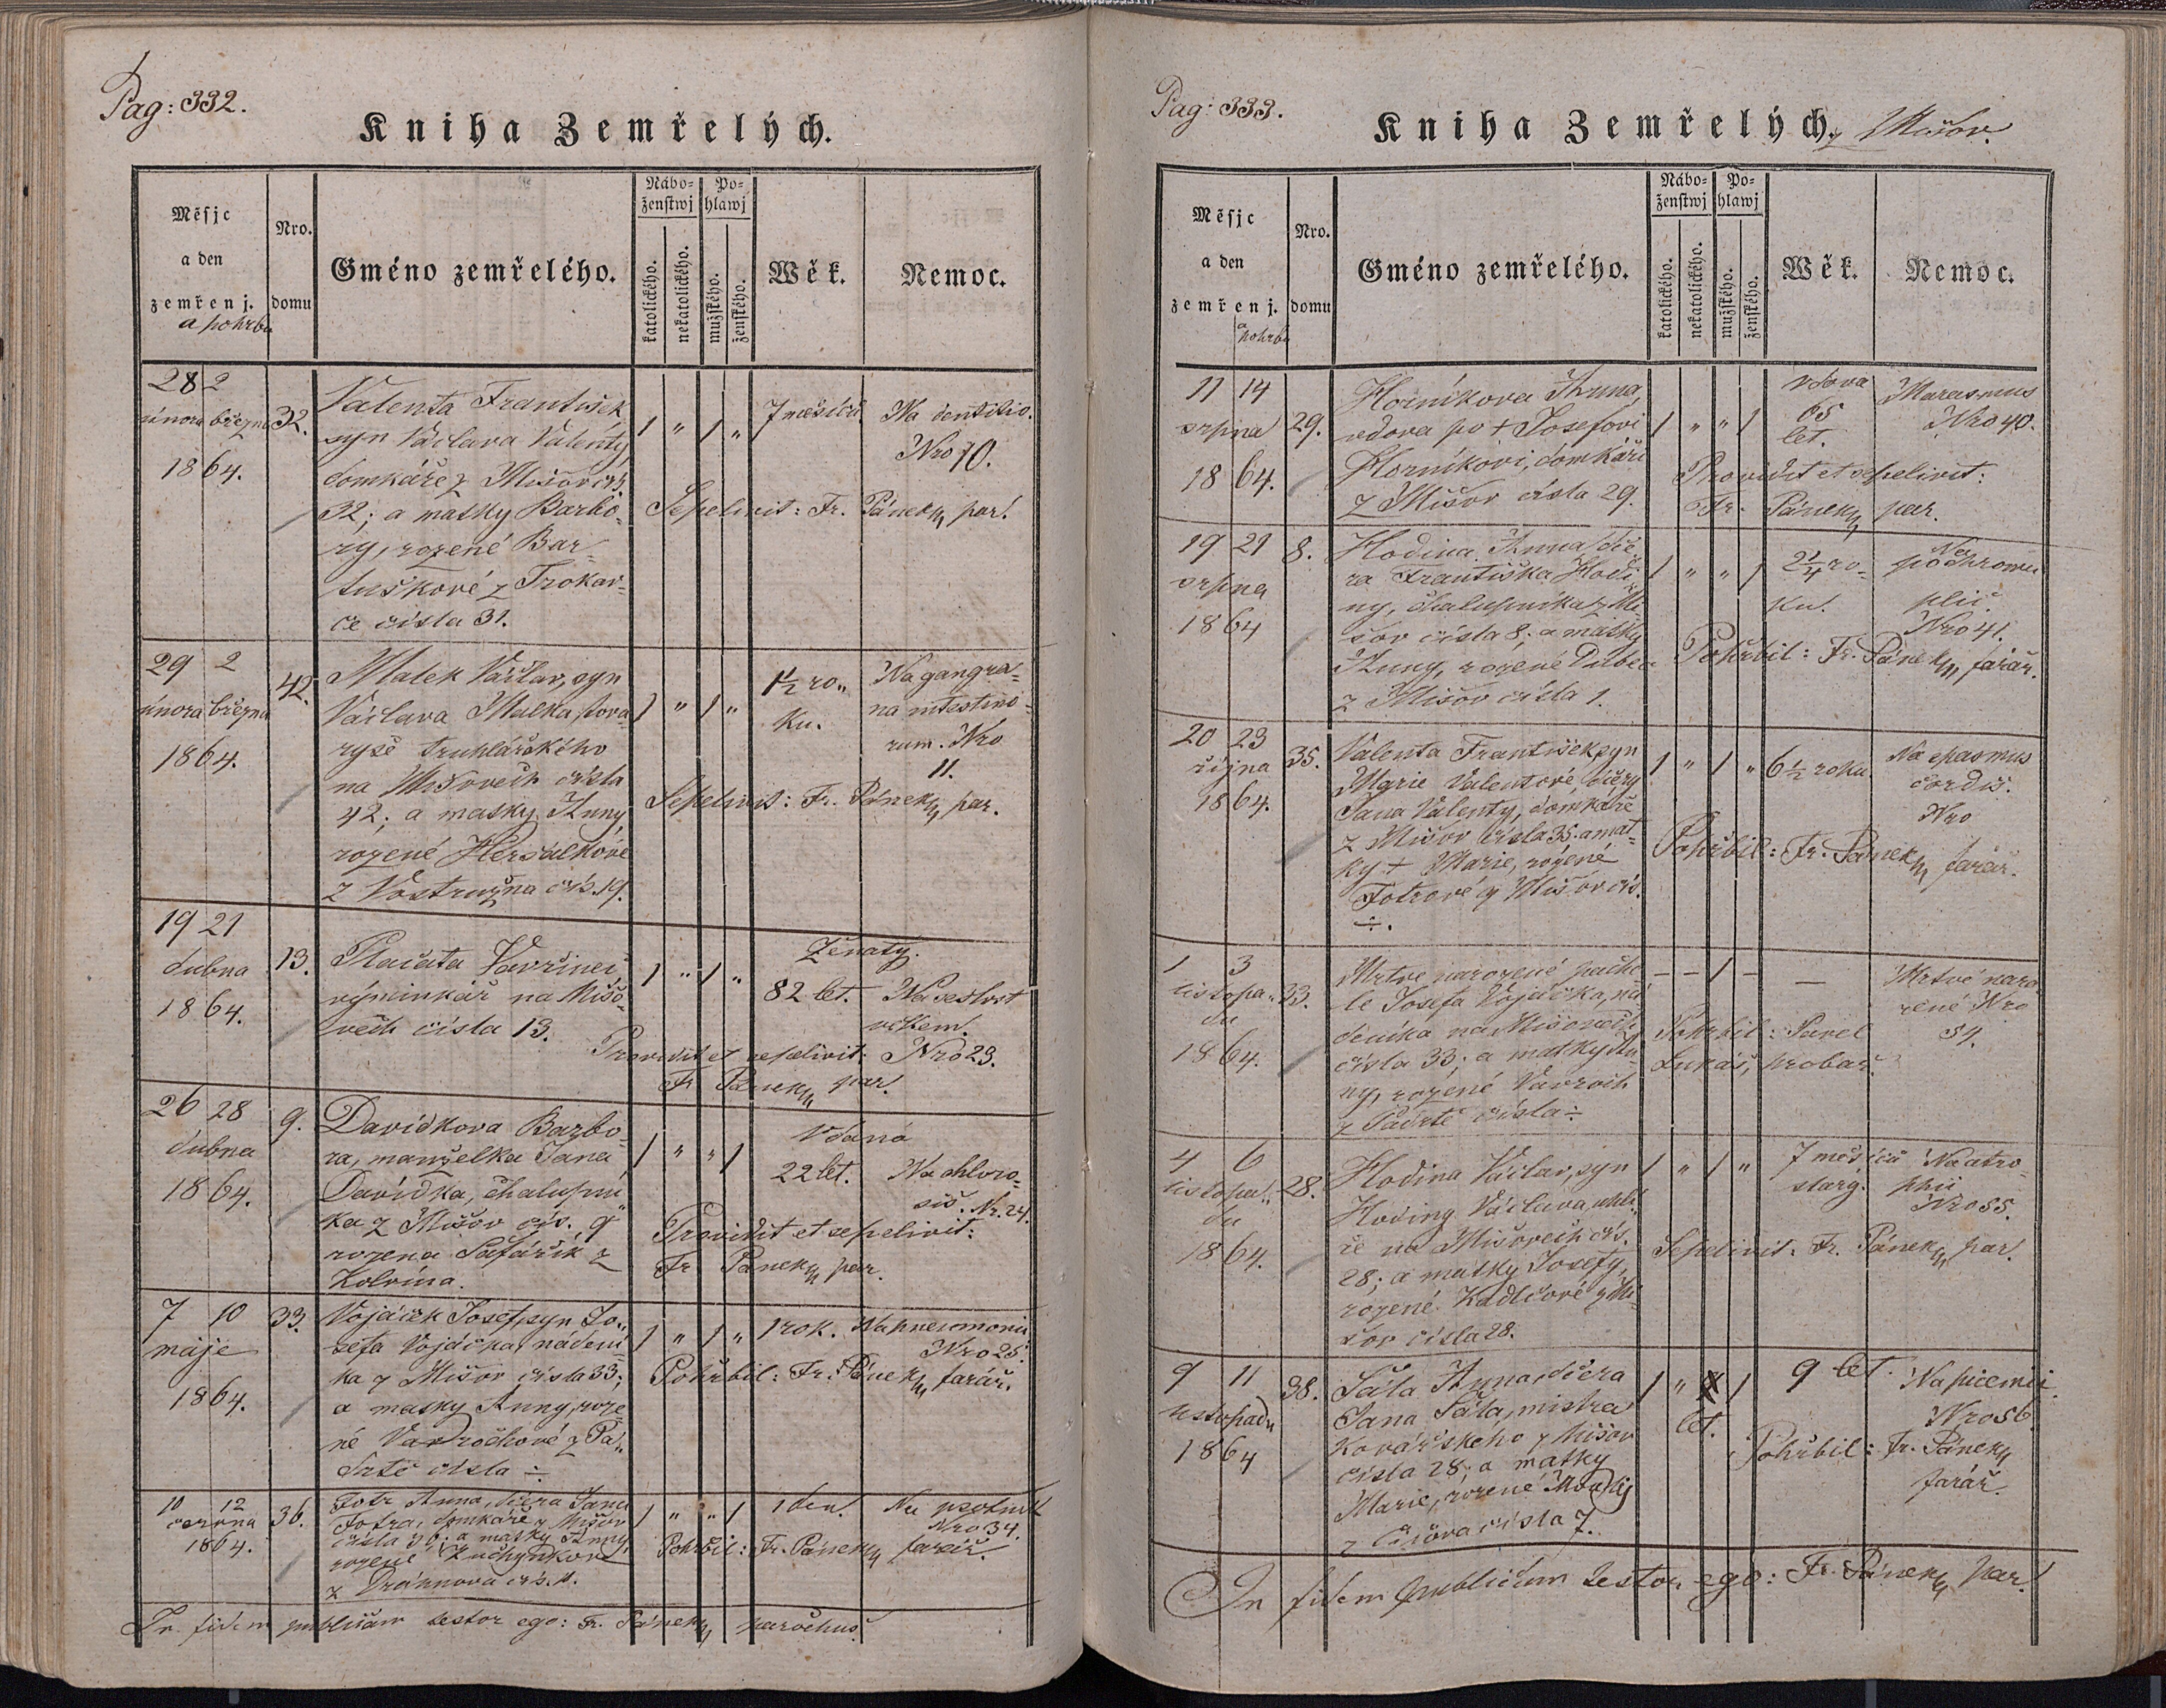 Pag: 332.
Kniha Zemřelých.
Měsjc a den zemřenj.
a pohrbu
Nro. domu
Gméno zemřelého.
Nábo=
ženstwj
katolického.
nekatolického.
Po=
hlawj
mužského.
ženského.
Wěk.
Nemoc.
28 2
února března
1864.
32.
Valenta František
syn Václava Valenty,
domkáře z Mišov čís
32; a matky Barbo-
ry, rozené Bar-
tuškové z Trokav-
ce čísla 31.
1 " 1 "
7 měsíců
Na dentitio.
Nro 10.
Sepelivit: Fr. Pánek, par.
29 2
února března
1864.
42.
Malek Václav, syn
Václava Malka, tova-
ryše truhlářského
na Mišovech čísla
42; a matky Anny,
rozené
z Vostružna čís. 19.
1 " 1 "
1 1/2 ro-
ku.
Na gangrae-
na intestino-
rum. Nro
11.
Sepelivit: Fr. Pánek, par.
19 21
dubna
1864.
13.
Plačata Vavřinec
výminkář na Mišo-
vech čísla 13.
1 " 1 "
ženatý.
82 let.
Na sešlost
věkem.
Nro 23.
Providit et sepelivit:
Fr Pánek, par.
26 28
dubna
1864.
9.
Davídkova Barbo-
ra, manželka Jana
Davídka, chalupní-
ka z Mišov čís. 9
rozená Šafařík z
Kolvína.
1 " " 1
Vdaná
22 let.
Na chloro-
sis. Nr. 24.
Providit et sepelivit:
Fr Pánek, par.
7 10
máje
1864.
33.
Vojáček Josef, syn Jo-
sefa Vojáčka, nádení-
ka z Mišov čísla 33;
a matky Anny, roze-
né Vavrochové z Pa-
drtě čísla ÷
1 " 1 "
1 rok.
Na pneumonii
Nro 25.
Pohřbil: Fr. Pánek, farář.
10 12
června
1864.
36.
Fotr Anna, dcera Jana
Fotra, domkáře z Mišov
čísla 36; a matky Anny,
rozené Kuchynkové
z čís. 11.
1 " " 1
1 den.
Na psotník
Nro 34.
Pohřbil: Fr. Pánek, farář.
In fidem publicam testor ego: Fr. Pánek, parochus.
Pag: 333.
Kniha Zemřelých, z Mišov.
Měsjc a den zemřenj.
a pohrbu
Nro. domu
Gméno zemřelého.
Nábo=
ženstwj
katolického.
nekatolického.
Po=
hlawj
mužského.
ženského.
Wěk.
Nemoc.
11 14
srpna
1864.
29.
Horníkova Anna,
vdova po + Josefovi
Horníkovi, domkáři
z Mišov čísla 29.
1 " " 1
vdova
65
let.
Marasmus
Nro 40.
Providit et sepelivit:
Fr. Pánek, par.
19 21
srpna
1864
8.
Hodina Anna, dce-
ra Františka Hodi-
ny, chalupníka z Mi-
šov čísla 8; a matky
Anny, rozené
z Mišov čísla 1.
1 " " 1
2 1/4 ro-
ku.
Na
plic.
Nro 41.
Pohřbil: Fr. Pánek, farář.
20 23
října
1864.
35.
Valenta František, syn
Marie Valentové, dcery
Jana Valenty, domkáře
z Mišov čísla 35. a mat-
ky + Marie, rozené
Fotrové z Mišov čís.
÷.
1 " 1 "
6 1/2 roku
Na spasmus
cordis.
Nro
Pohřbil: Fr. Pánek, farář.
1 3
listopa-
du
1864.
33.
Mrtvě narozené pacho-
le Josefa Vojáčka, ná-
deníka na Mišovech
čísla 33; a matky An-
ny, rozené Vavroch
z Padrtě čísla ÷
– – 1 –
—
Mrtvě naro-
zené Nro
54.
Pohřbil: Pavel
Lukáš, hrobař.
4 6
listopa-
du
1864.
28.
Hodina Václav, syn
Hodiny Václava, uhlí-
ře na Mišovech čís.
28; a matky Josefy,
rozené Kadlcové z Mi-
šov čísla 28.
1 " 1 "
7 měsíců
starý.
Na atro-
phii
Nro 55.
Sepelivit: Fr. Pánek, par.
9 11
listopadu
1864
38.
Šála Anna, dcera
Jana Šála, mistra
kovářského z Mišov
čísla 28; a matky
Marie, rozené
z čísla 7.
1 " 1
9 let.
let.
Na
Nro 56.
Pohřbil: Fr. Pánek,
farář.
In fidem publicam testor ego: Fr. Pánek, par.